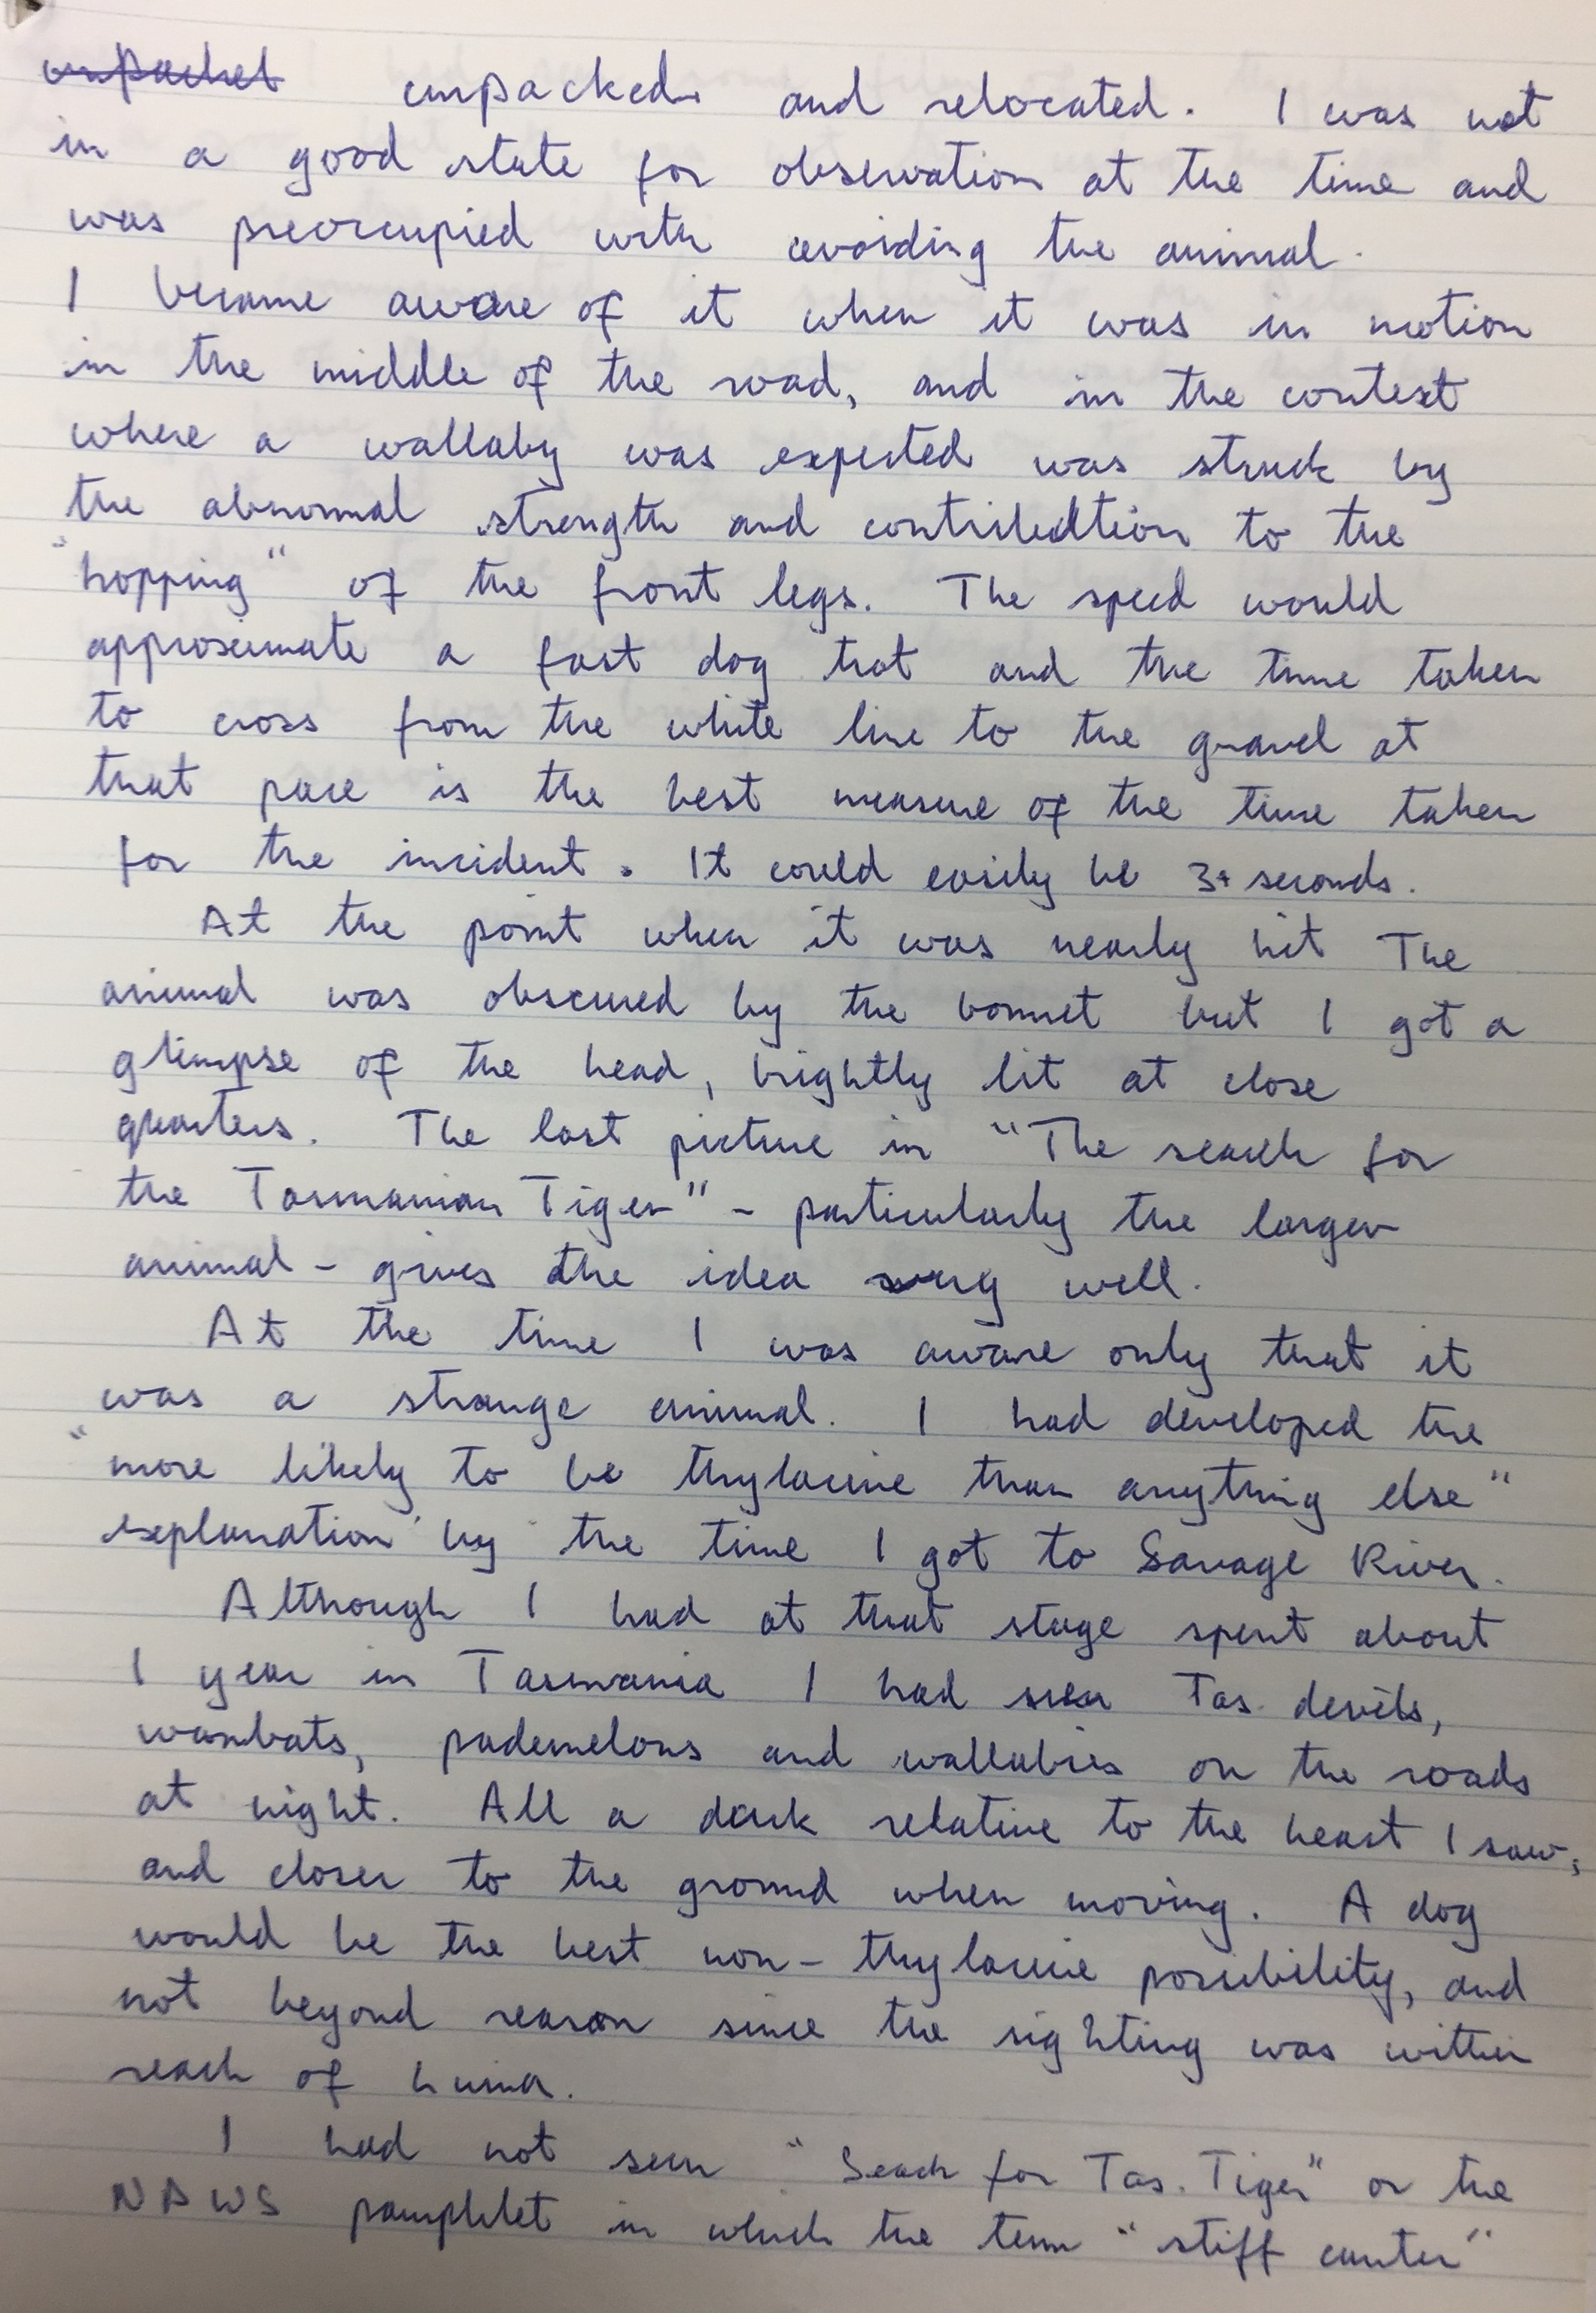 unpacked and relocated. I was not
in a good state for observation at the time and
was preoccupied with avoiding the animal.
I became aware of it when it was in motion
in the middle of the road, and in the context
where a wallaby was expected was struck by
the abnormal strength and contribution to the
"hopping" of the front legs. The speed would
approximate a fast dog trot and the time taken
to cross from the white line to the gravel at
that pace is the best measure of the time taken
for the incident. It could easily be 3+ seconds.
At the point when it was nearly hit The
animal was obscured by the bonnet but I got a
glimpse of the head, brightly lit at close
quarters. The last picture in "The search for
the Tasmanian Tiger" - particularly the larger
animal - gives the idea very well.
At the time I was aware only that it
was a strange animal. I had developed the
"more likely to be thylacine than anything else"
explanation by the time I got to Savage River.
Although I had at that stage spent about
1 year in Tasmania I had seen Tas. devils,
wombats, pademelons and wallabies on the roads
at night. All a dark relative to the beast I saw,
and closer to the ground when moving. A dog
would be the best non-thylacine possibility, and
not beyond reason since the sighting was within
reach of Luina.
I had not seen "Search for Tas. Tiger" or the
NPWS pamphlet in which the term "stiff canter"